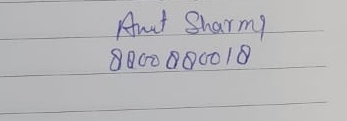 Amit Sharma
8800880018